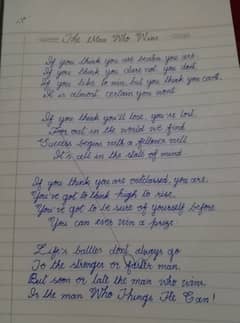 The Man Who Wins
If you think you are beaten you are.
If you think you dare not, you don't
If you like to win, but you think you can't,
It is almost certain you won't
If you think you'll lose, you're lost,
For out in the world we find
Success begins with a fellow's will
It's all in the state of mind
If you think you are outclassed, you are,
You've got to think high to rise,
You've got to be sure of yourself before
You can ever win a prize.
Life's battles don't always go
To the stronger or faster man.
But soon or late the man who wins,
Is the man Who Things He Can!